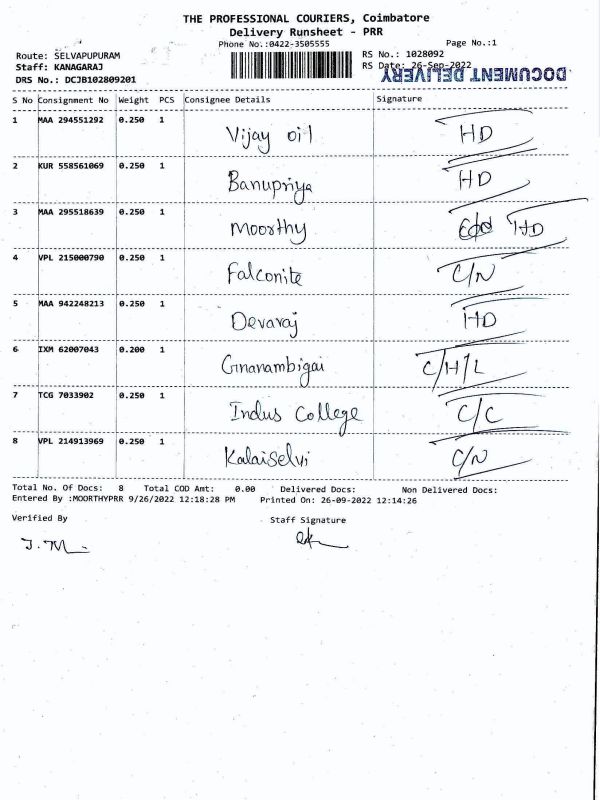 THE PROFESSIONAL COURIERS, Coimbatore
Delivery Runsheet - PRR
Phone No.:0422-3505555 Page No.:1
Route: SELVAPUPURAM RS No.: 1028092
Staff: KANAGARAJ RS Date: 26-Sep-2022
DOCUMENT DELIVERY
DRS No.: DCJB102809201
S No Consignment No Weight PCS Consignee Details Signature
1 MAA 294551292 0.250 1 Vijay oil HD
2 KUR 558561069 0.250 1 Banupriya HD
3 MAA 295518639 0.250 1 Moorthy HD
4 VPL 215000790 0.250 1 Falconite C/N
5 MAA 942248213 0.250 1 Devaraj HD
6 IXM 62007043 0.200 1 Gnanambigai C/H/L
7 TCG 7033902 0.250 1 Indus College C/C
8 VPL 214913969 0.250 1 Kalaiselvi C/N
Total No. Of Docs: 8 Total COD Amt: 0.00 Delivered Docs: Non Delivered Docs:
Entered By :MOORTHYPRR 9/26/2022 12:18:28 PM Printed On: 26-09-2022 12:14:26
Verified By Staff Signature